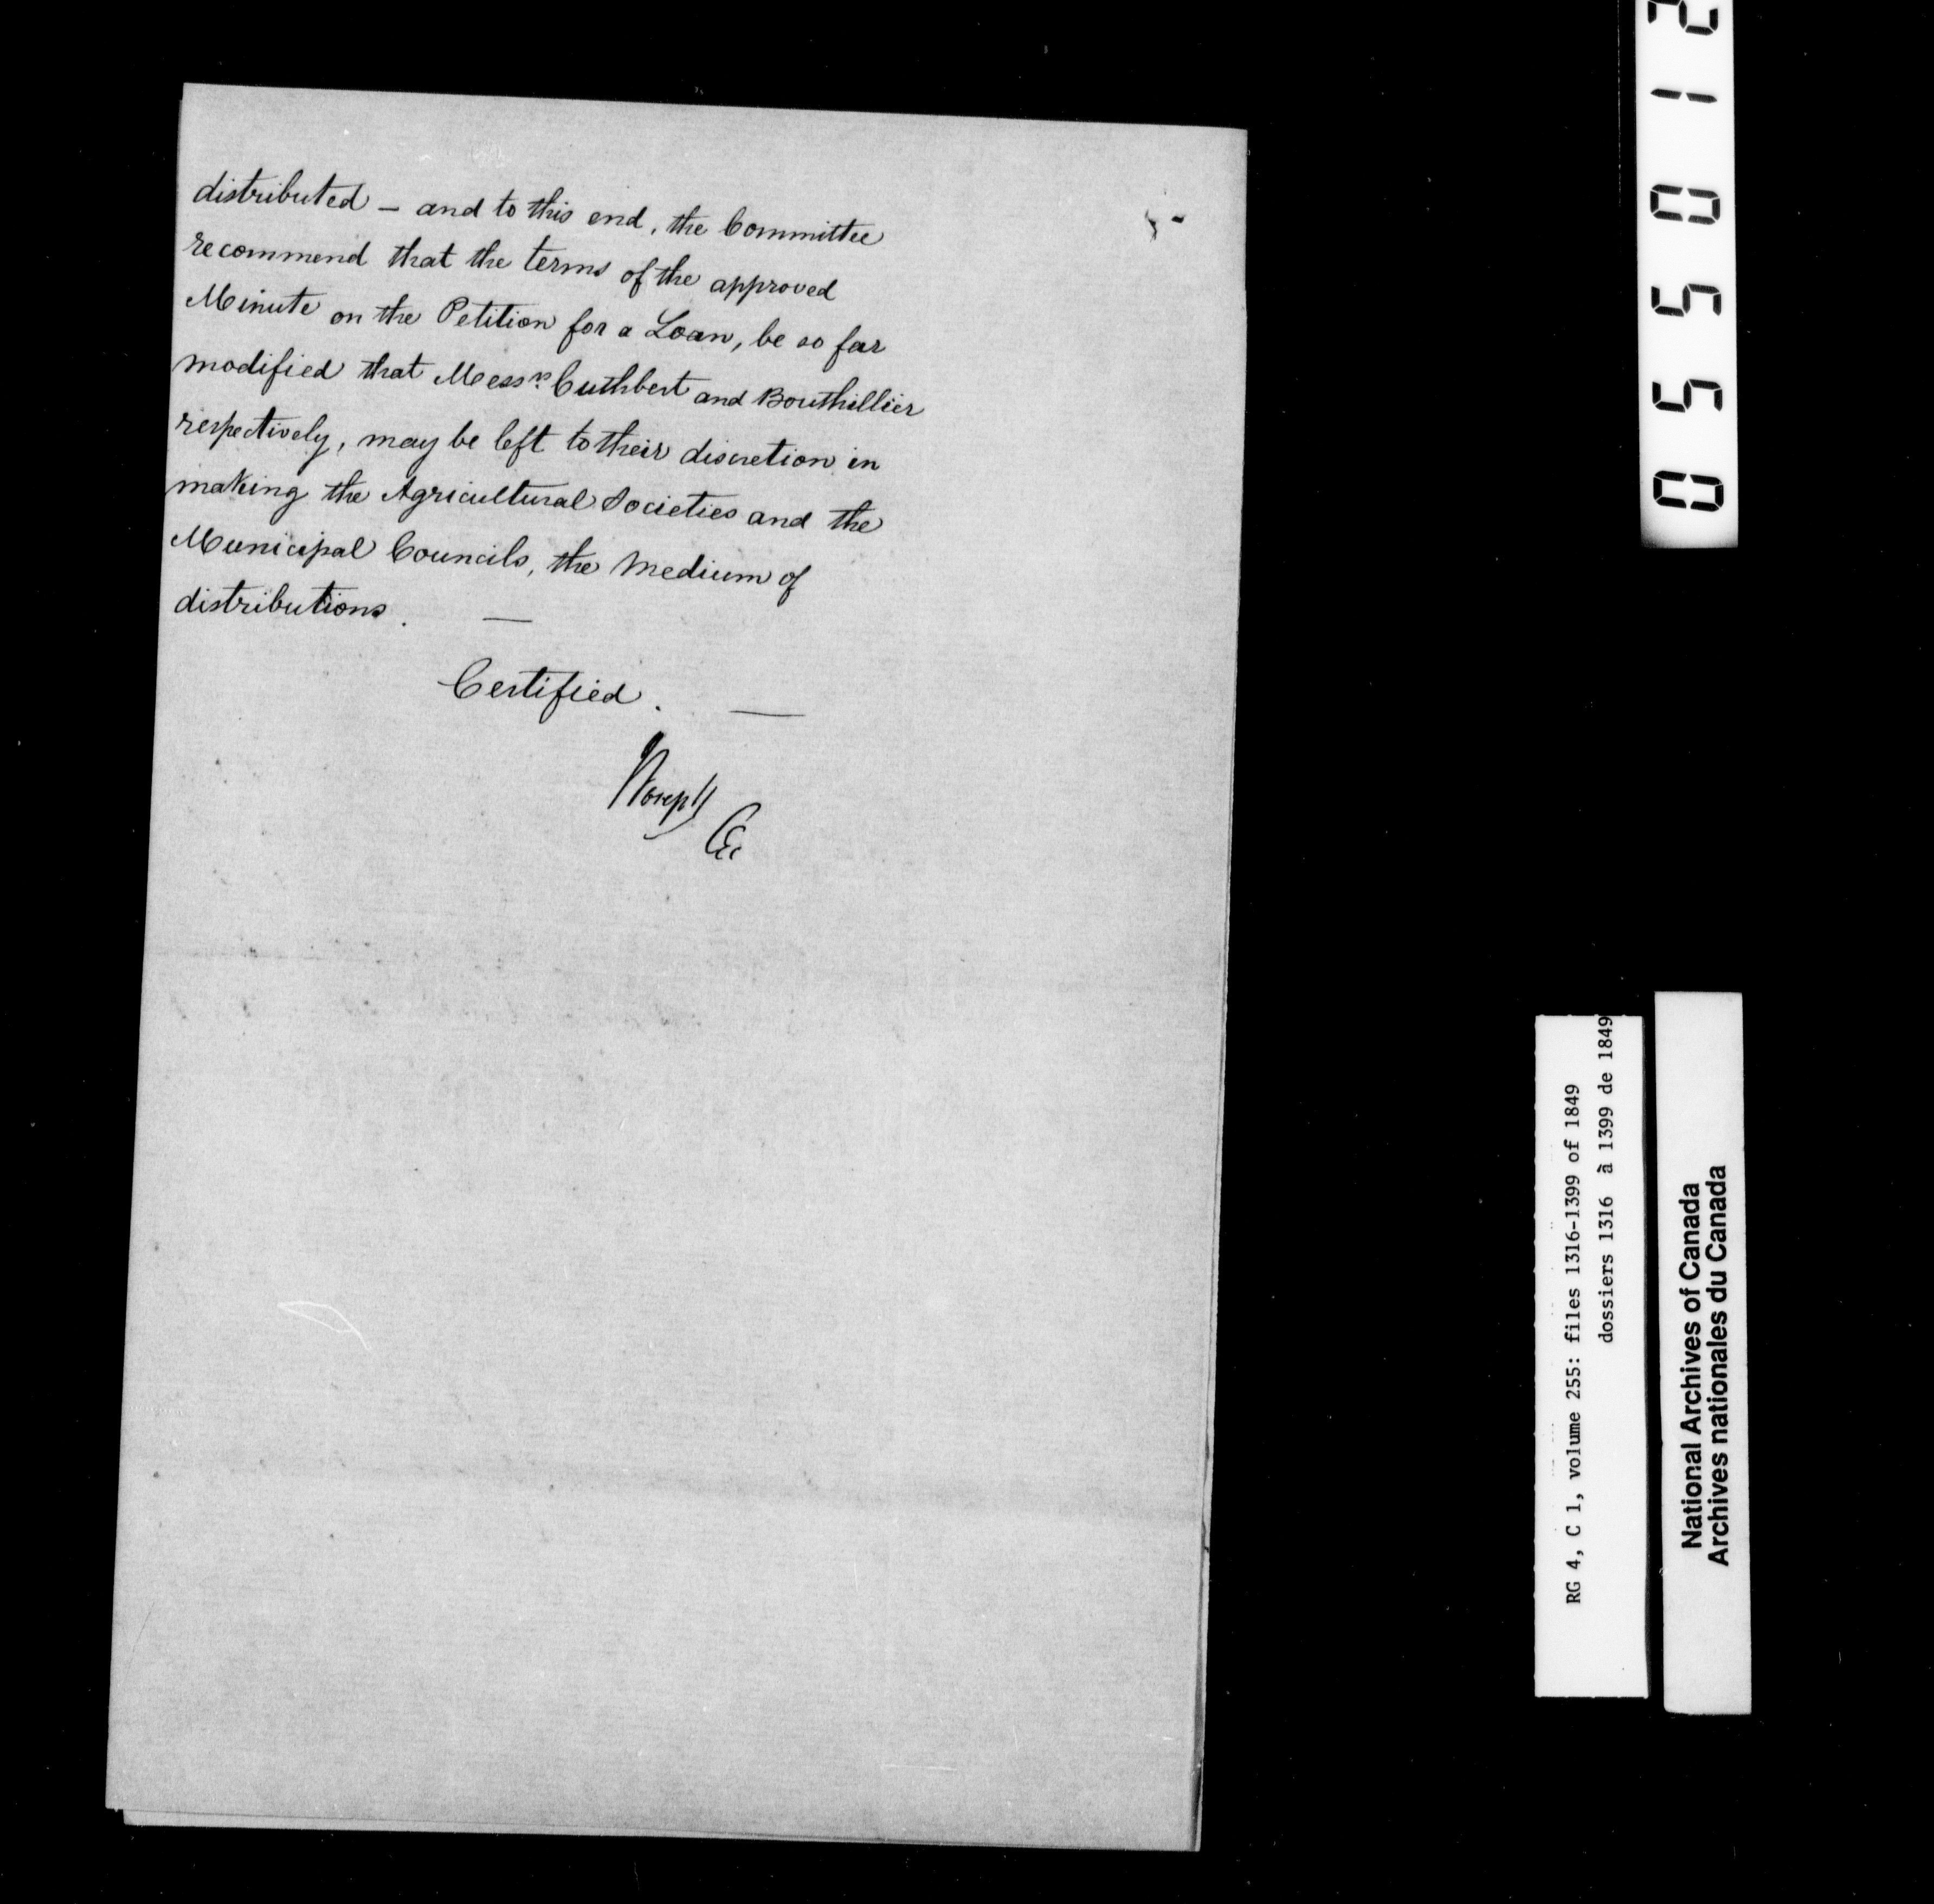 distributed — and to this end, the Committee
recommend that the terms of the approved
Minute on the Petition for a Loan, be so far
modified that Messrs. Cuthbert and Bouthillier
respectively, may be left to their discretion in
making the Agricultural Societies and the
Municipal Councils, the Medium of
distributions. —
Certified. —
Joseph
055012
RG 4, C 1, volume 255: files 1316-1399 of 1849
dossiers 1316 à 1399 de 1849
National Archives of Canada
Archives nationales du Canada